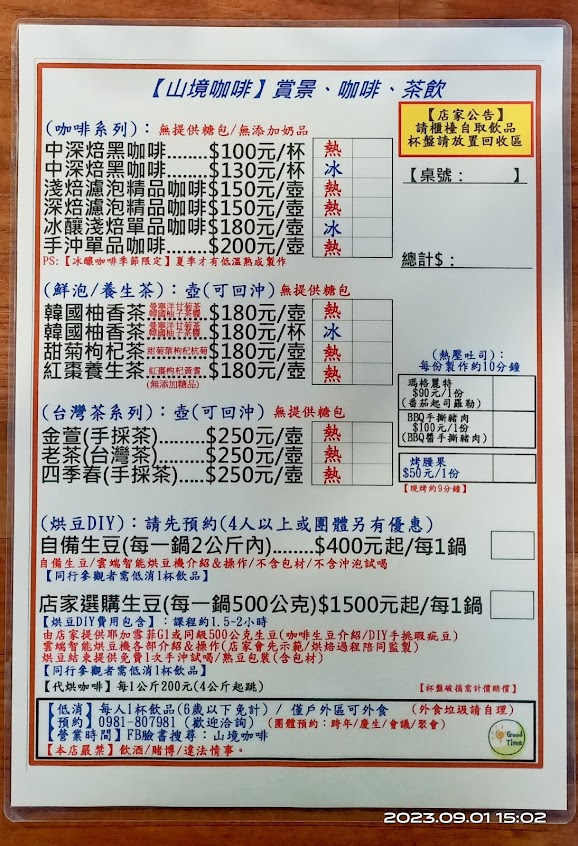 【山境咖啡】賞景、咖啡、茶飲
【店家公告】
請櫃檯自取飲品
杯盤請放置回收區
(咖啡系列)：無提供糖包/無添加奶品
中深焙黑咖啡........$100元/杯 熱
中深焙黑咖啡........$130元/杯 冰
淺焙濾泡精品咖啡$150元/壺 熱
深焙濾泡精品咖啡$150元/壺 熱
冰釀淺焙單品咖啡$180元/壺 冰
手沖單品咖啡........$200元/壺 熱
PS:【冰釀咖啡季節限定】夏季才有低溫熟成製作
【桌號：　　　】
總計$：
(鮮泡/養生茶)：壺(可回沖)無提供糖包
韓國柚香茶 $180元/壺 熱
韓國柚香茶 $180元/杯 冰
甜菊枸杞茶 甜菊葉枸杞杭菊 $180元/壺 熱
紅棗養生茶 紅棗枸杞黃耆 $180元/壺 熱
(無添加糖品)
(台灣茶系列)：壺(可回沖) 無提供糖包
金萱(手採茶).......$250元/壺 熱
老茶(台灣茶).......$250元/壺 熱
四季春(手採茶).....$250元/壺 熱
(熱壓吐司)：
每份製作約10分鐘
瑪格麗特
$90元/1份
(番茄起司羅勒)
BBQ手撕豬肉
$100元/1份
(BBQ醬手撕豬肉)
烤腰果
$50元/1份
【現烤約9分鐘】
(烘豆DIY)：請先預約(4人以上或團體另有優惠)
自備生豆(每一鍋2公斤內)........$400元起/每1鍋
自備生豆/雲端智能烘豆機介紹&操作/不含包材/不含沖泡試喝
【同行參觀者需低消1杯飲品】
店家選購生豆(每一鍋500公克)$1500元起/每1鍋
【烘豆DIY費用包含】：課程約1.5~2小時
由店家提供耶加雪菲G1或同級500公克生豆(咖啡生豆介紹/DIY手挑瑕疵豆)
雲端智能烘豆機各部介紹&操作(店家會先示範/烘焙過程陪同監製)
烘豆結束提供免費1次手沖試喝/熟豆包裝(含包材)
【同行參觀者需低消1杯飲品】
【代烘咖啡】每1公斤200元(4公斤起跳)
【杯盤破損需計價賠償】
【低消】每人1杯飲品(6歲以下免計) / 僅戶外區可外食 (外食垃圾請自理)
【預約】0981-807981 (歡迎洽詢) (團體預約：跨年/慶生/會議/聚會)
【營業時間】FB臉書搜尋：山境咖啡
【本店嚴禁】飲酒/賭博/違法情事。
Good
Time
2023.09.01 15:02